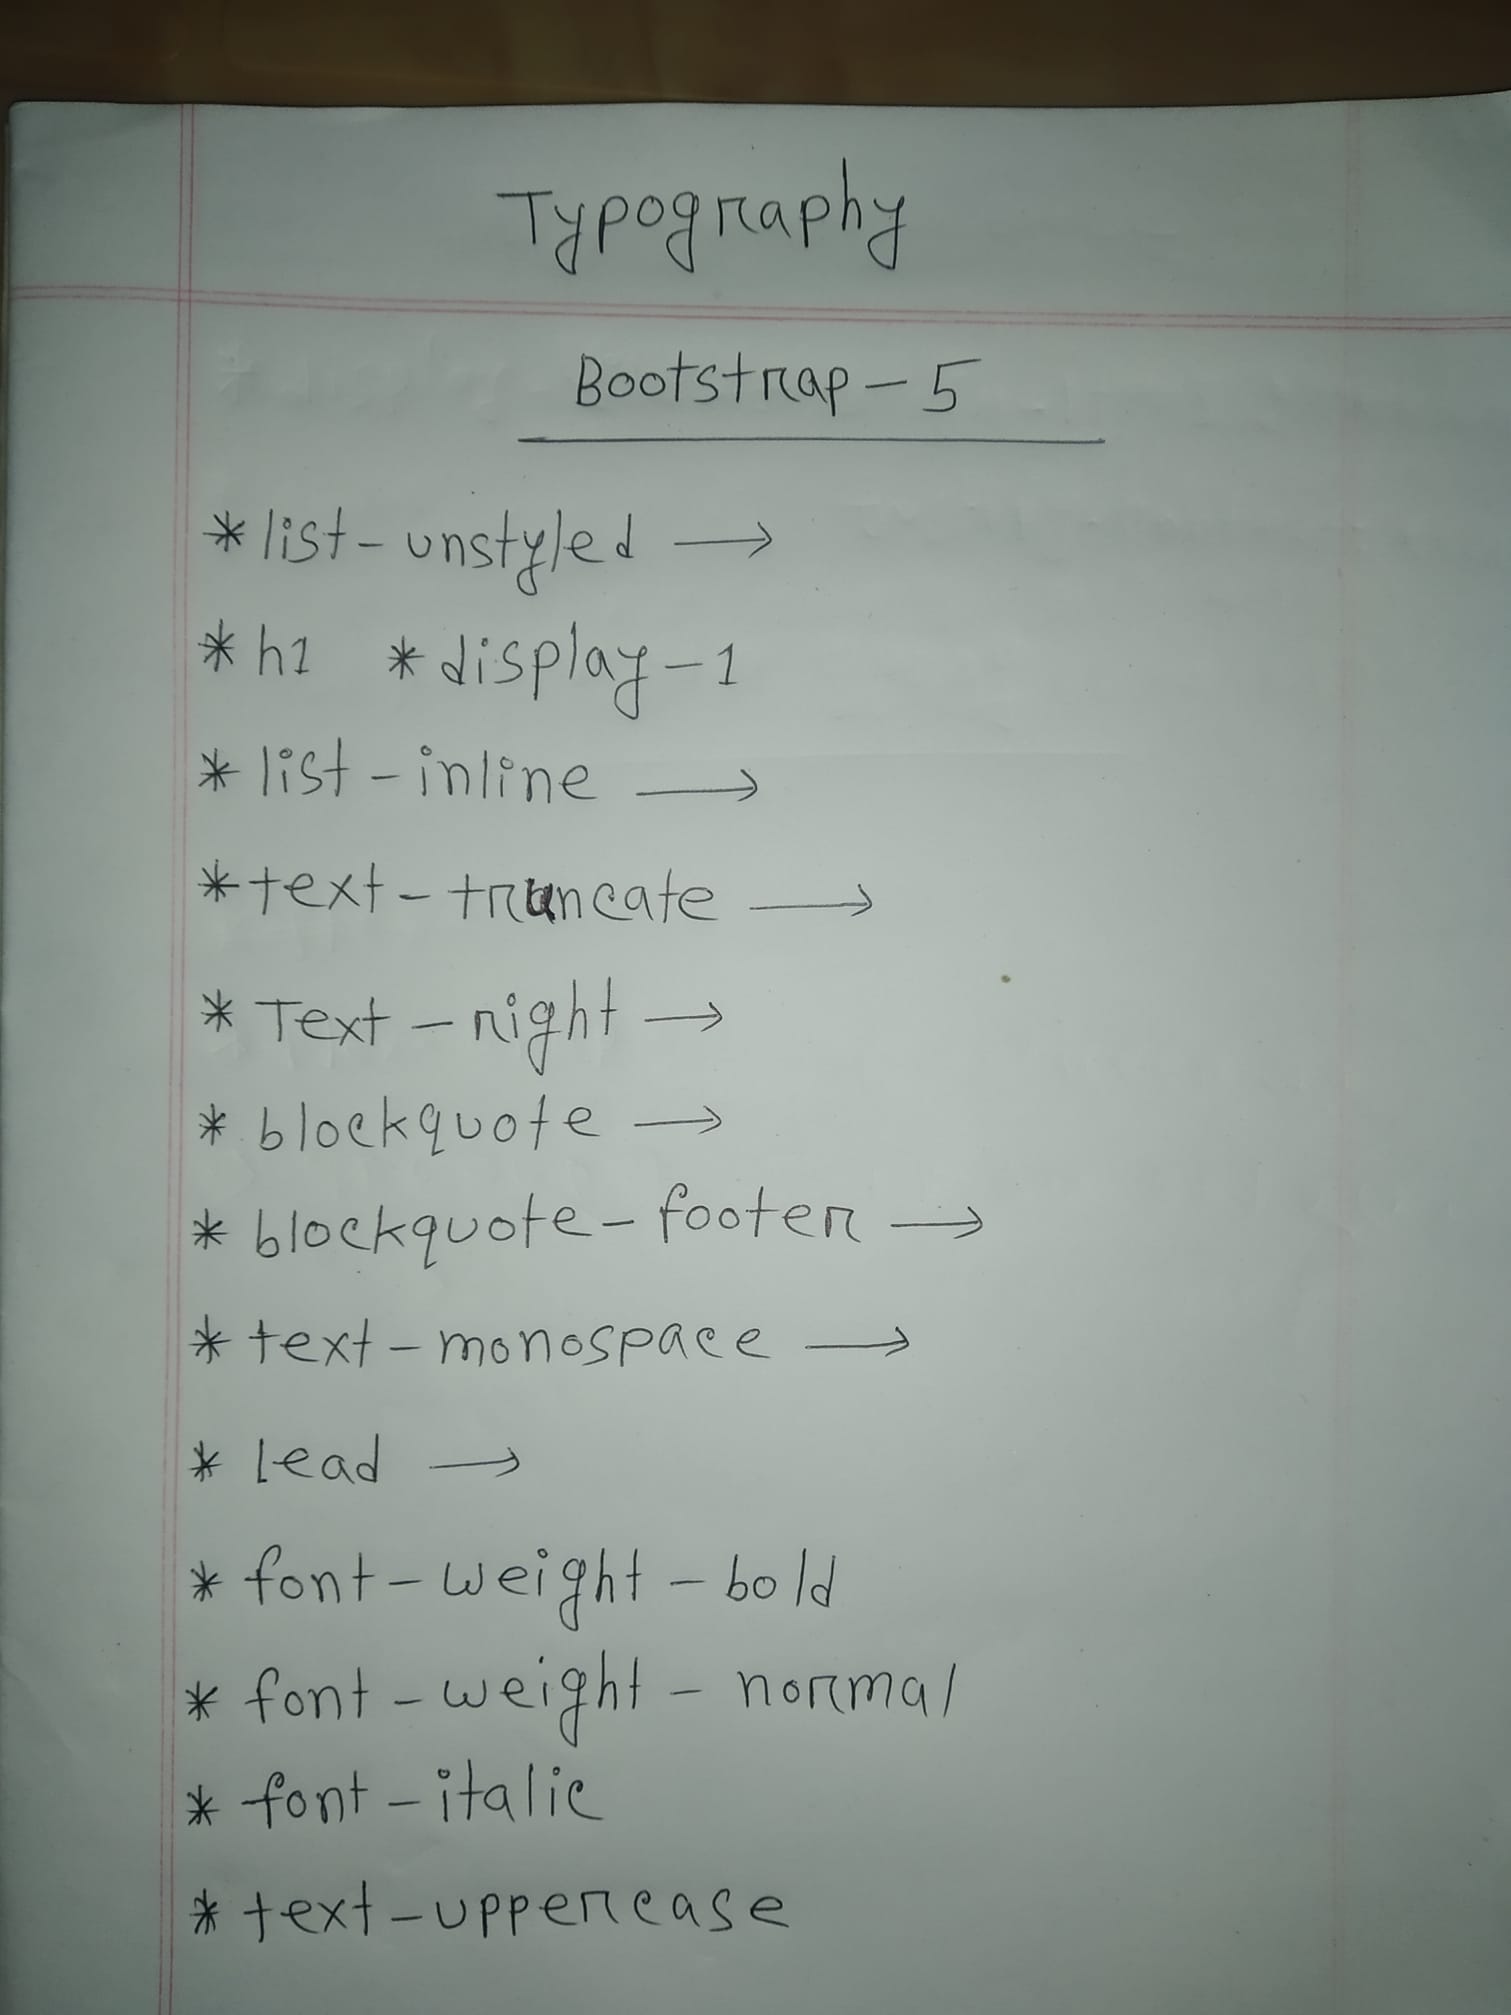 Typography
Bootstrap - 5
* list - unstyled →
* h1 * display - 1
* list - inline →
* text - truncate →
* Text - right →
* blockquote →
* blockquote - footer →
* text - monospace →
* Lead →
* font - weight - bold
* font - weight - normal
* font - italic
* text - uppercase